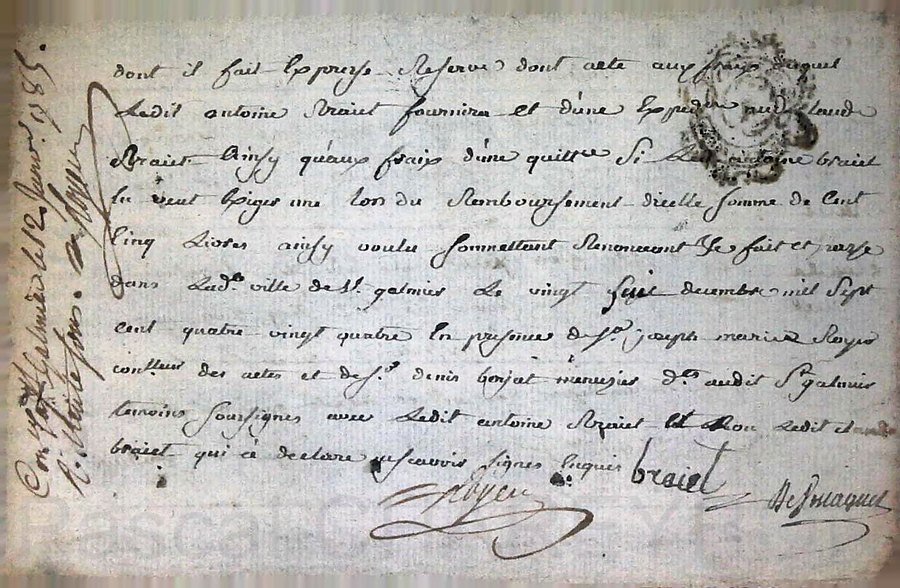 dont il fait Expresse Reserve dont acte aux frais duquel
Ledit antoine Braiet fournira et d'une Expedon audt Claude
Braiet Ainsy qu'aux frais d'une quittce Si Ledt antoine braiet
En veut Exiger une lors du Remboursement d'icelle somme de Cent
Cinq Livres ainsy voulu soumettant Renoncant &c fait et passé
dans Ladte ville de St galmier Le vingt huit decembre mil Sept
Cent quatre vingt quatre En presence de Sr joseph marie Royer
contlleur des actes et de Sr denis bonjat menuzier dt audit St galmier
temoins soussignes avec Ledit antoine Braiet Et Non Ledit claude
braiet qui a declaré ne scavoir signer Enquis
braiet
Royer
Conlé à St Galmier le 12 Janvr 1785.
R. huit sous. Royer